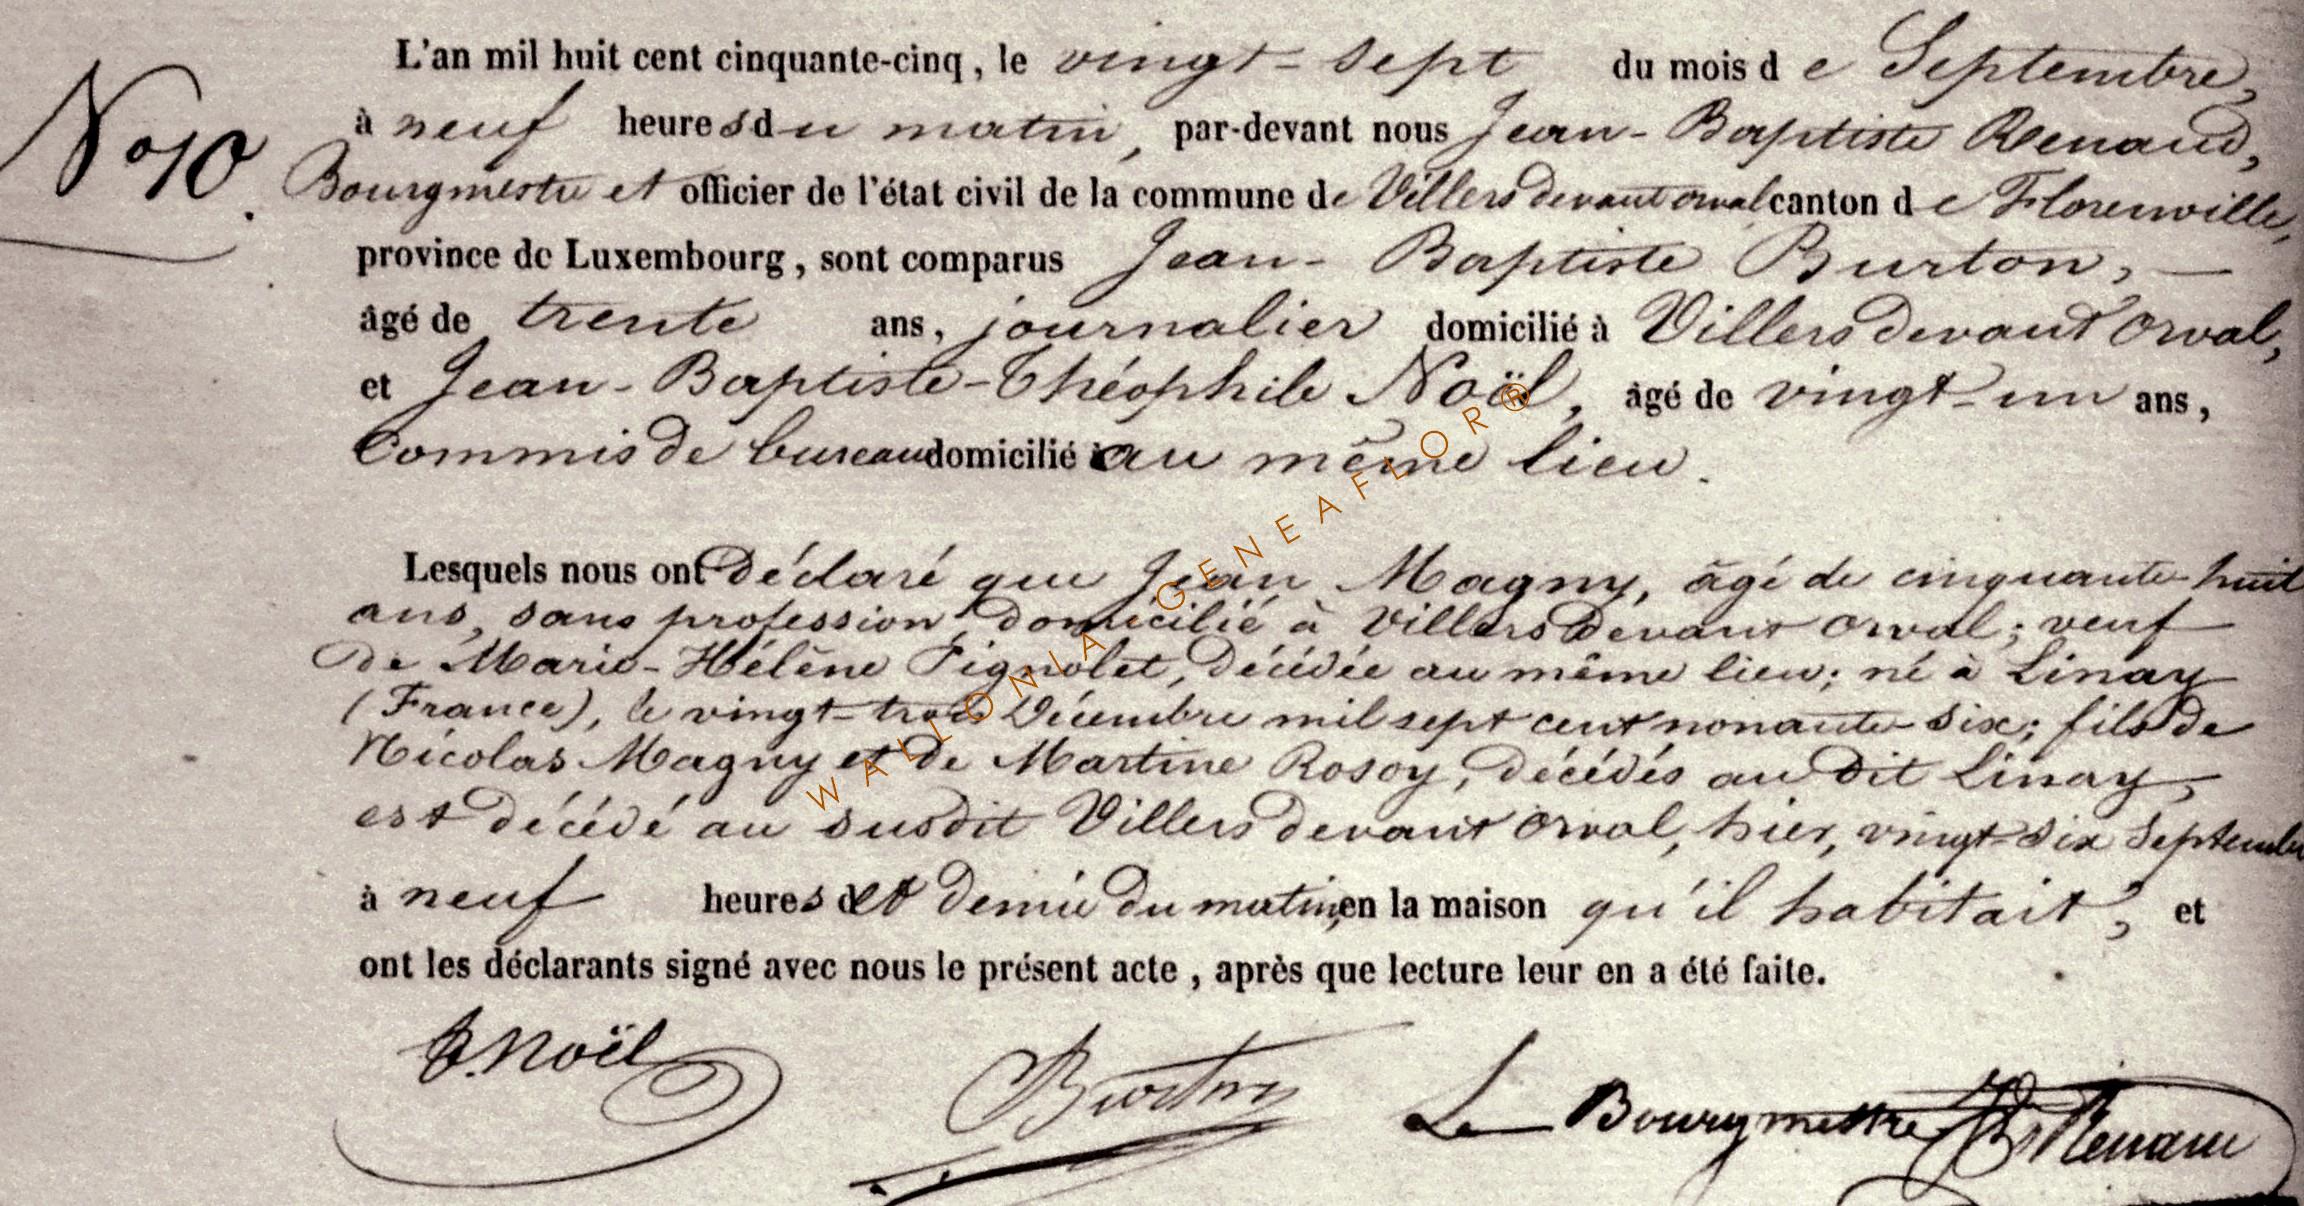 L'an mil huit cent cinquante-cinq, le vingt-sept du mois de Septembre,
à neuf heures du matin, par-devant nous Jean-Baptiste Renaud,
No 10.
Bourgmestre et officier de l'état civil de la commune de Villers devant orval canton de Florenville,
province de Luxembourg, sont comparus Jean-Baptiste Burton, —
âgé de trente ans, journalier domicilié à Villers devant Orval,
et Jean-Baptiste-Théophile Noël, âgé de vingt-un ans,
Commis de bureau domicilié au même lieu.
Lesquels nous ont déclaré que Jean Magny, âgé de cinquante-huit
ans, sans profession, domicilié à Villers devant Orval; veuf
de Marie-Hélène Pignolet, décédée au même lieu; né à Linay
(France), le vingt-trois Décembre mil sept cent nonante-six; fils de
Nicolas Magny et de Martine Rosoy, décédés au dit Linay,
est décédé au susdit Villers devant Orval, hier, vingt-six Septembre
à neuf heures et demie du matin, en la maison qu'il habitait, et
ont les déclarants signé avec nous le présent acte, après que lecture leur en a été faite.
WALLONIA GENEAFLOR®
Noël
Burton
Le Bourgmestre Renaud